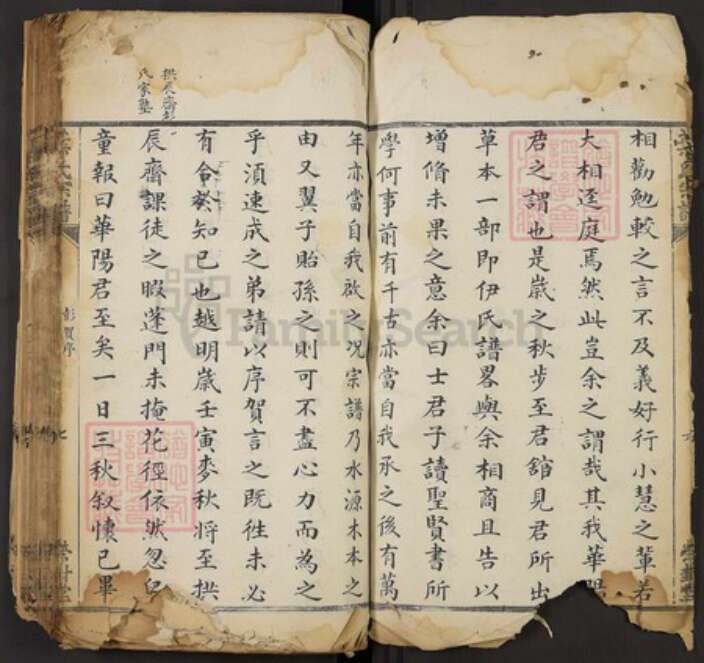 相勸勉較之言不及義好行小慧之輩若
大相逕庭焉然此豈余之謂哉其我華陽
君之謂也是歲之秋步至君舘見君所出
草本一部即伊氏譜畧與余相商且告以
增脩未果之意余曰士君子讀聖賢書所
學何事前有千古亦當自我承之後有萬
年亦當自我啟之况宗譜乃水源木本之
由又翼子貽孫之則可不盡心力而為之
乎須速成之弟請以序賀言之既徃未必
有令發知已也越明歲壬寅麥秋將至拱
辰齋課徒之暇蓬門未掩花徑依然忽
童報曰華陽君至矣一日三秋叙懷已畢
拱辰齋彭
氏家塾
彭賀序
FamilySearch